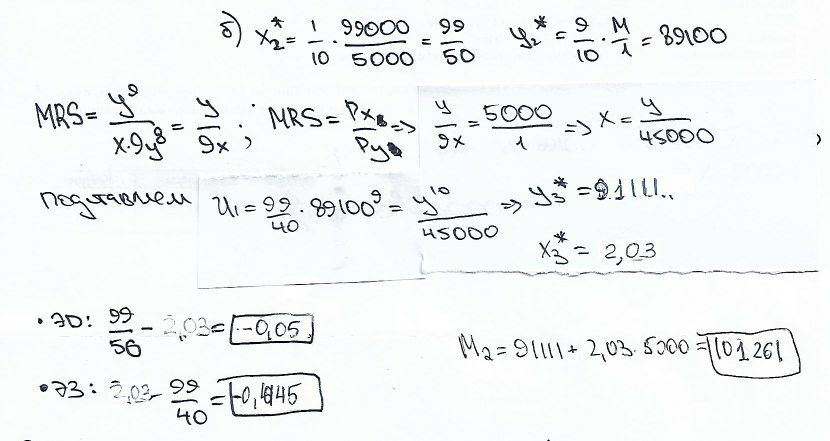 б) x₂* = 1/10 · 99000/5000 = 99/50   y₂* = 9/10 · M/1 = 89100
MRS = y⁹/(x·9y⁸) = y/9x ; MRS = Px/Py => y/9x = 5000/1 => x = y/45000 ,
подставляем U₁ = 99/40 · 89100⁹ = y¹⁰/45000 => y₃* = 91111..
x₃* = 2,03
• ЭD: 99/50 - 2,03 = -0,05
M₂ = 91111 + 2,03·5000 = 101261
• ЭЗ: 2,03 - 99/40 = -0,445